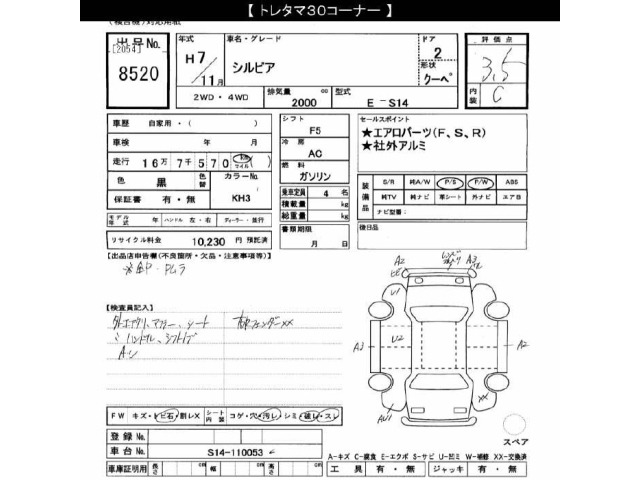 【 トレタマ30コーナー 】
(複合機)対応用紙
出品No.
[2054]
8520
年式
H7
11月
車名・グレード
シルビア
ドア
2
形状
クーペ
評価点
3.5
内装
C
2WD・4WD
排気量
cc
2000
型式
E-S14
車歴 自家用・( )
車検 年 月
走行 16万7千570 km マイル ( )
色 黒
色替
カラーNo.
KH3
保証書 有・無
モデル年式 年 ハンドル 左・右 ディーラー・並行
リサイクル料金 10,230 円 預託済
シフト
F5
冷房
AC
燃料
ガソリン
乗車定員 4 名
積載量 kg
総重量 kg
書類期限
月 日
セールスポイント
★エアロパーツ(F、S、R)
★社外アルミ
装備品
S/R 純A/W P/S P/W ABS
純TV 純ナビ 革シート 外ナビ エアB
ナビ型番:
後日品
【出品店申告欄(不良箇所・欠品・注意事項等)】
【検査員記入】
外エアクリ、マフラー、シート
ハンドル、シフトノブ
XX
FW キズ・トビ石・割レX
シート内装 コゲ・穴・汚レ・シミ・破レ・スレ
登録No.
車台No. S14-110053
車庫証明用 長さ cm 幅 cm 高さ cm
A2
A3
U1
A3
U2
A2
XX
スペア
A-キズ C-腐食 E-エクボ S-サビ U-凹ミ W-補修 XX-交換済
工具 有・無 ジャッキ 有・無